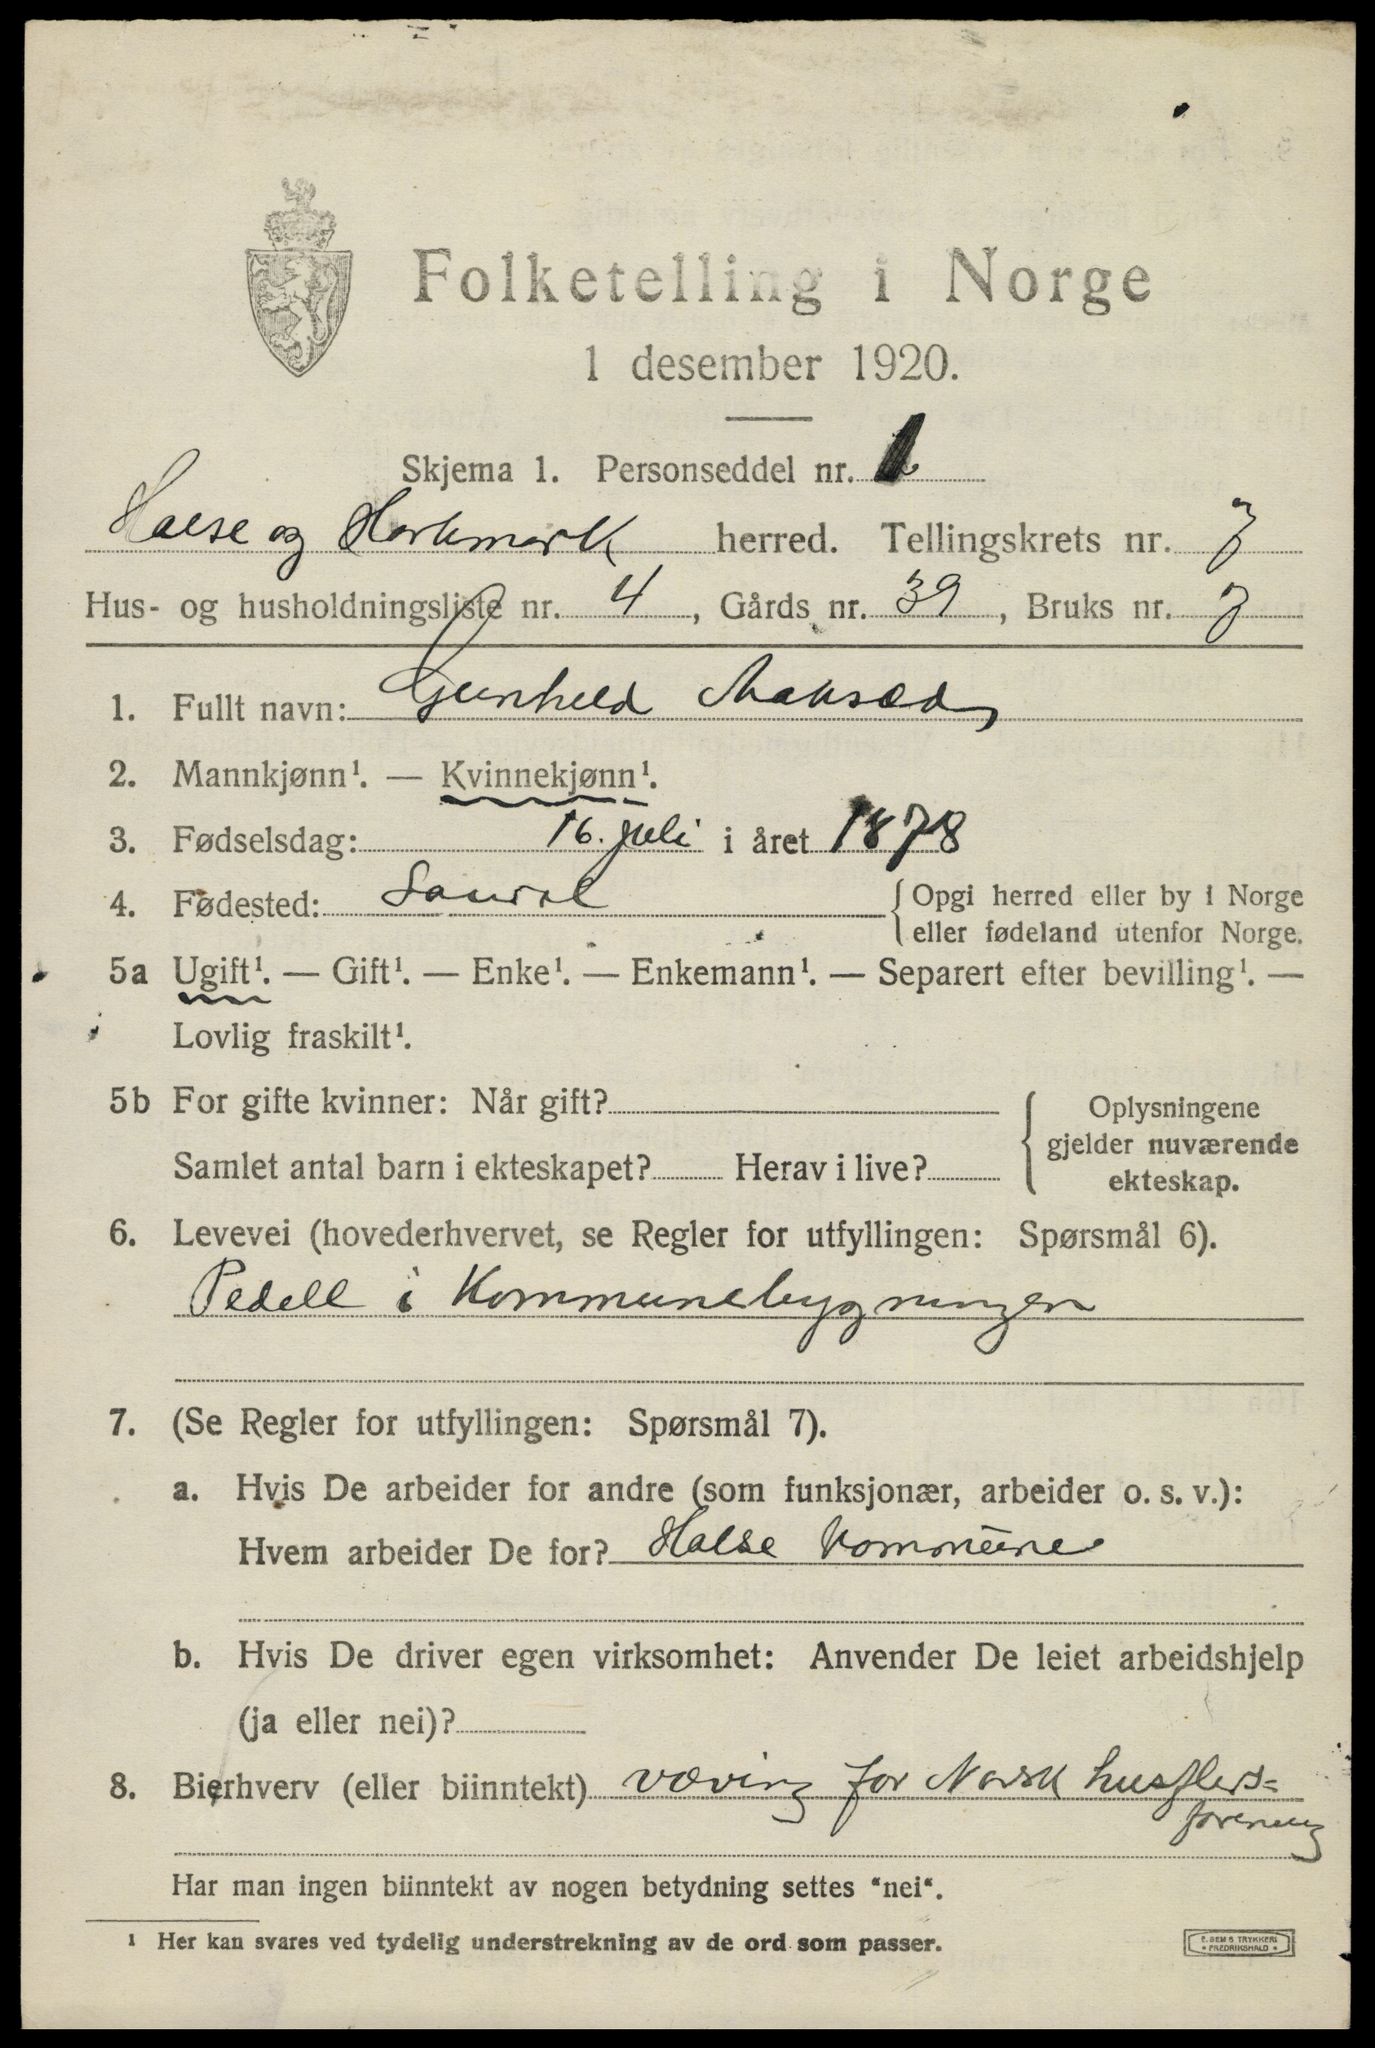 Folketelling i Norge
1 desember 1920.
Skjema 1. Personseddel nr. 1
Halse og Harkmark herred. Tellingskrets nr. 7
Hus- og husholdningsliste nr. 4, Gårds nr. 39, Bruks nr. 7
1. Fullt navn: Gunhild
2. Mannkjønn¹. — Kvinnekjønn¹.
3. Fødselsdag: 16. juli i året 1878
4. Fødested: { Opgi herred eller by i Norge
eller fødeland utenfor Norge.
5a Ugift¹. — Gift¹. — Enke¹. — Enkemann¹. — Separert efter bevilling¹. —
Lovlig fraskilt¹.
5b For gifte kvinner: Når gift? { Oplysningene
gjelder nuværende
Samlet antal barn i ekteskapet? Herav i live? ekteskap.
6. Levevei (hovederhvervet, se Regler for utfyllingen: Spørsmål 6).
Pedell i Kommunebygningen
7. (Se Regler for utfyllingen: Spørsmål 7).
a. Hvis De arbeider for andre (som funksjonær, arbeider o. s. v.):
Hvem arbeider De for? Halse Kommune
b. Hvis De driver egen virksomhet: Anvender De leiet arbeidshjelp
(ja eller nei)?
8. Bierhverv (eller biinntekt) væving for Norsk husflids=
forening
Har man ingen biinntekt av nogen betydning settes "nei".
¹ Her kan svares ved tydelig understrekning av de ord som passer.
E. SEM'S TRYKKERI
• FREDRIKSHALD •